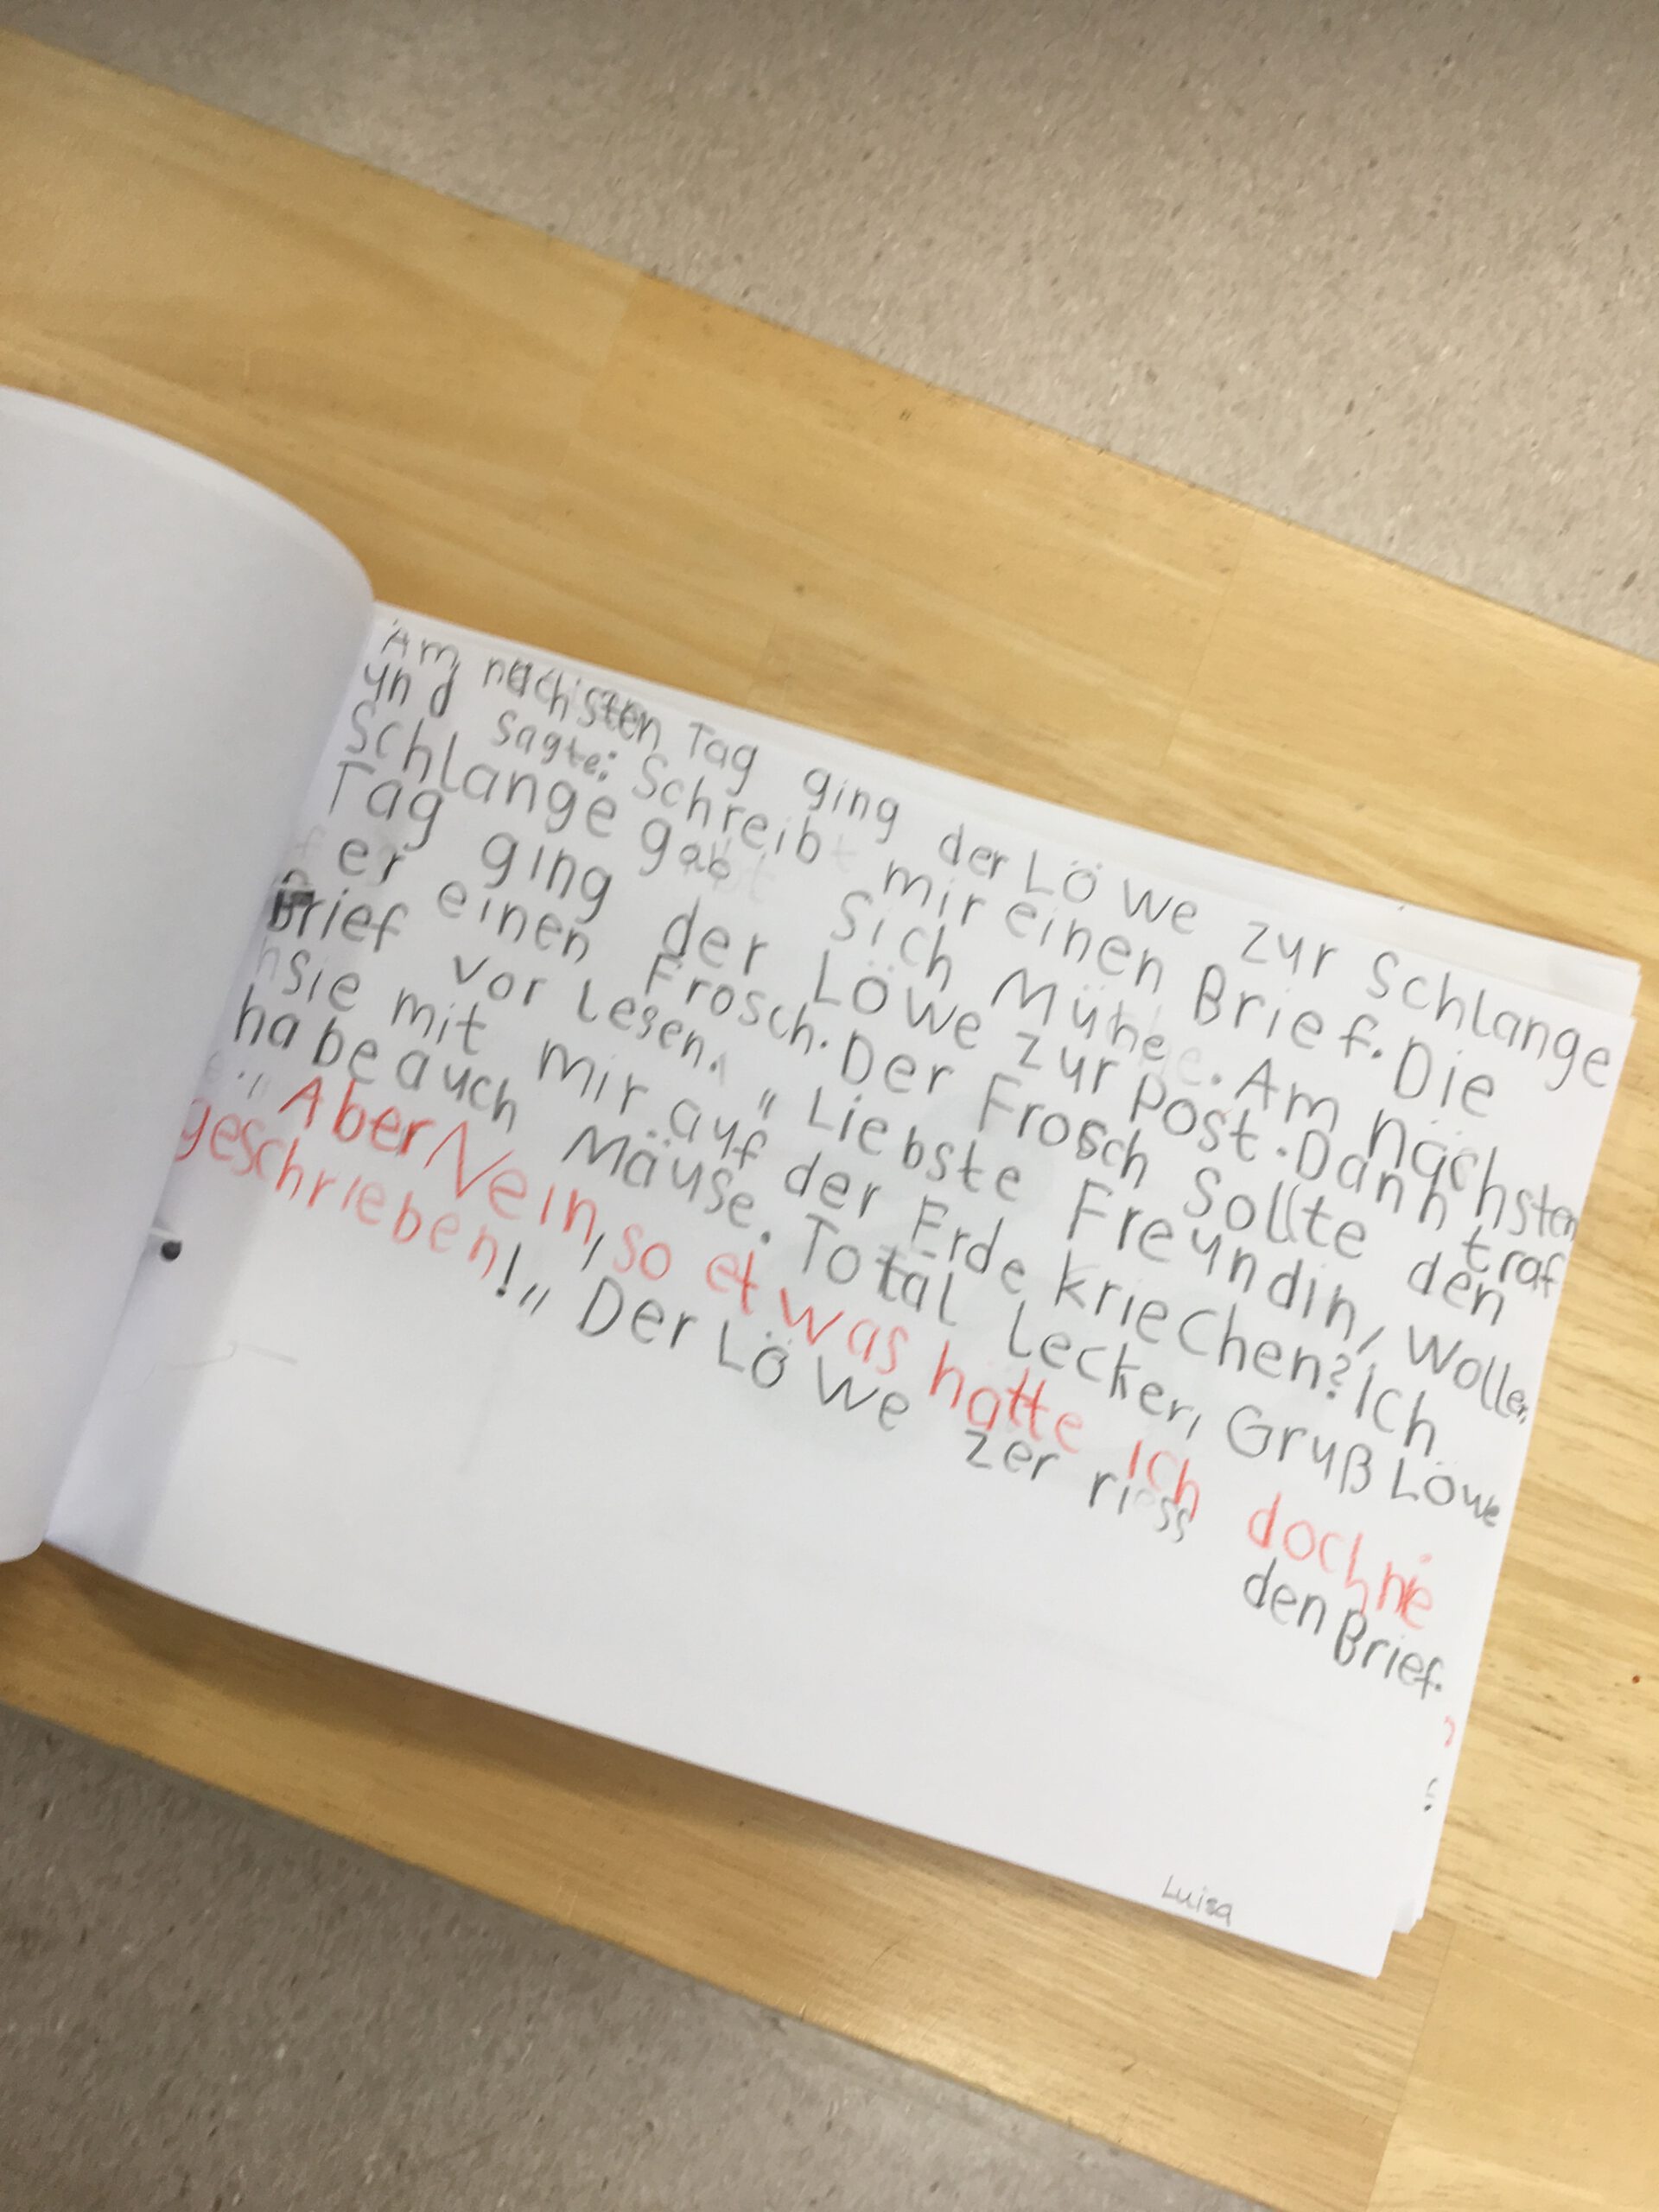 Am nächsten Tag ging der Löwe zur Schlange
und sagte: Schreib mir einen Brief. Die
Schlange gab sich Mühe. Am nächsten
Tag ging der Löwe zur Post. Dann traf
er einen Frosch. Der Frosch sollte den
Brief vor lesen. "Liebste Freundin, Wollen
sie mit mir auf der Erde kriechen? Ich
habe auch Mäuse. Total lecker, Gruß Löwe
" Aber Nein, so etwas hatte ich doch nie
geschrieben!" Der Löwe zer riss den Brief.
Luisa